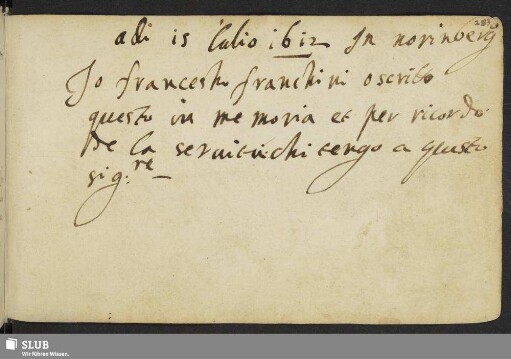 adi 15 Lulio 1612 In norinberg
Io francesho franchini o scrito
questo in memoria et per ricordo
de la servitu chi tengo a questo
sig:re
SLUB
Wir führen Wissen.